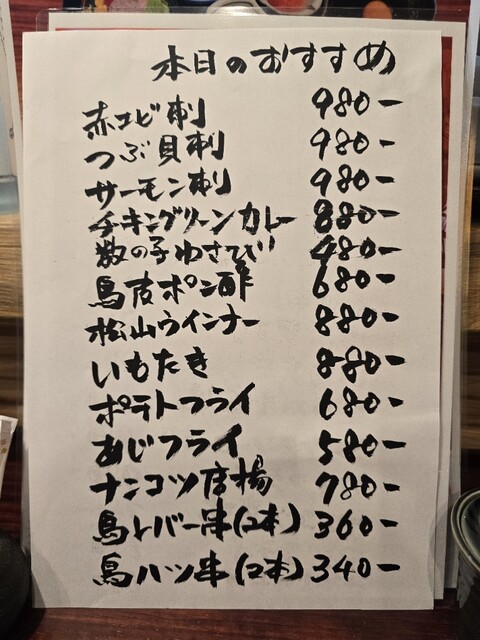 本日のおすすめ
赤エビ刺 980-
つぶ貝刺 980-
サーモン刺 980-
チキングリーンカレー 880-
数の子わさび 480-
鳥皮ポン酢 680-
松山ウインナー 880-
いもたき 880-
ポテトフライ 680-
あじフライ 580-
ナンコツ唐揚 780-
鳥レバー串(2本) 360-
鳥ハツ串(2本) 340-